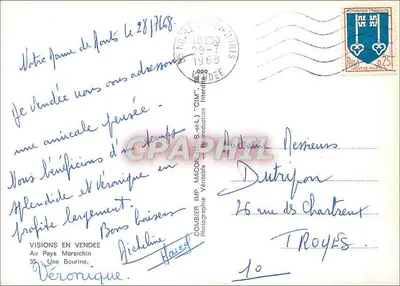 Notre Dame de Monts le 28/7/68.
De Vendée nous vous adressons
une amicale pensée.
Nous bénéficions d'un temps
splendide et Véronique en
profite largement.
Bons baisers
Micheline
Véronique.
VISIONS EN VENDEE
Au Pays Maraichin
Une Bourine.
COMBIER IMP. MACON (S.-et-L.) "CIM"
Photographie Véritable - Reproduction Interdite
1968
VENDEE
REPUBLIQUE FRANCAISE
0,25
MONT-DE-MARSAN
Madame Messieurs
Dutripon
26 rue des Chartreux
TROYES.
10
CPAPHIL